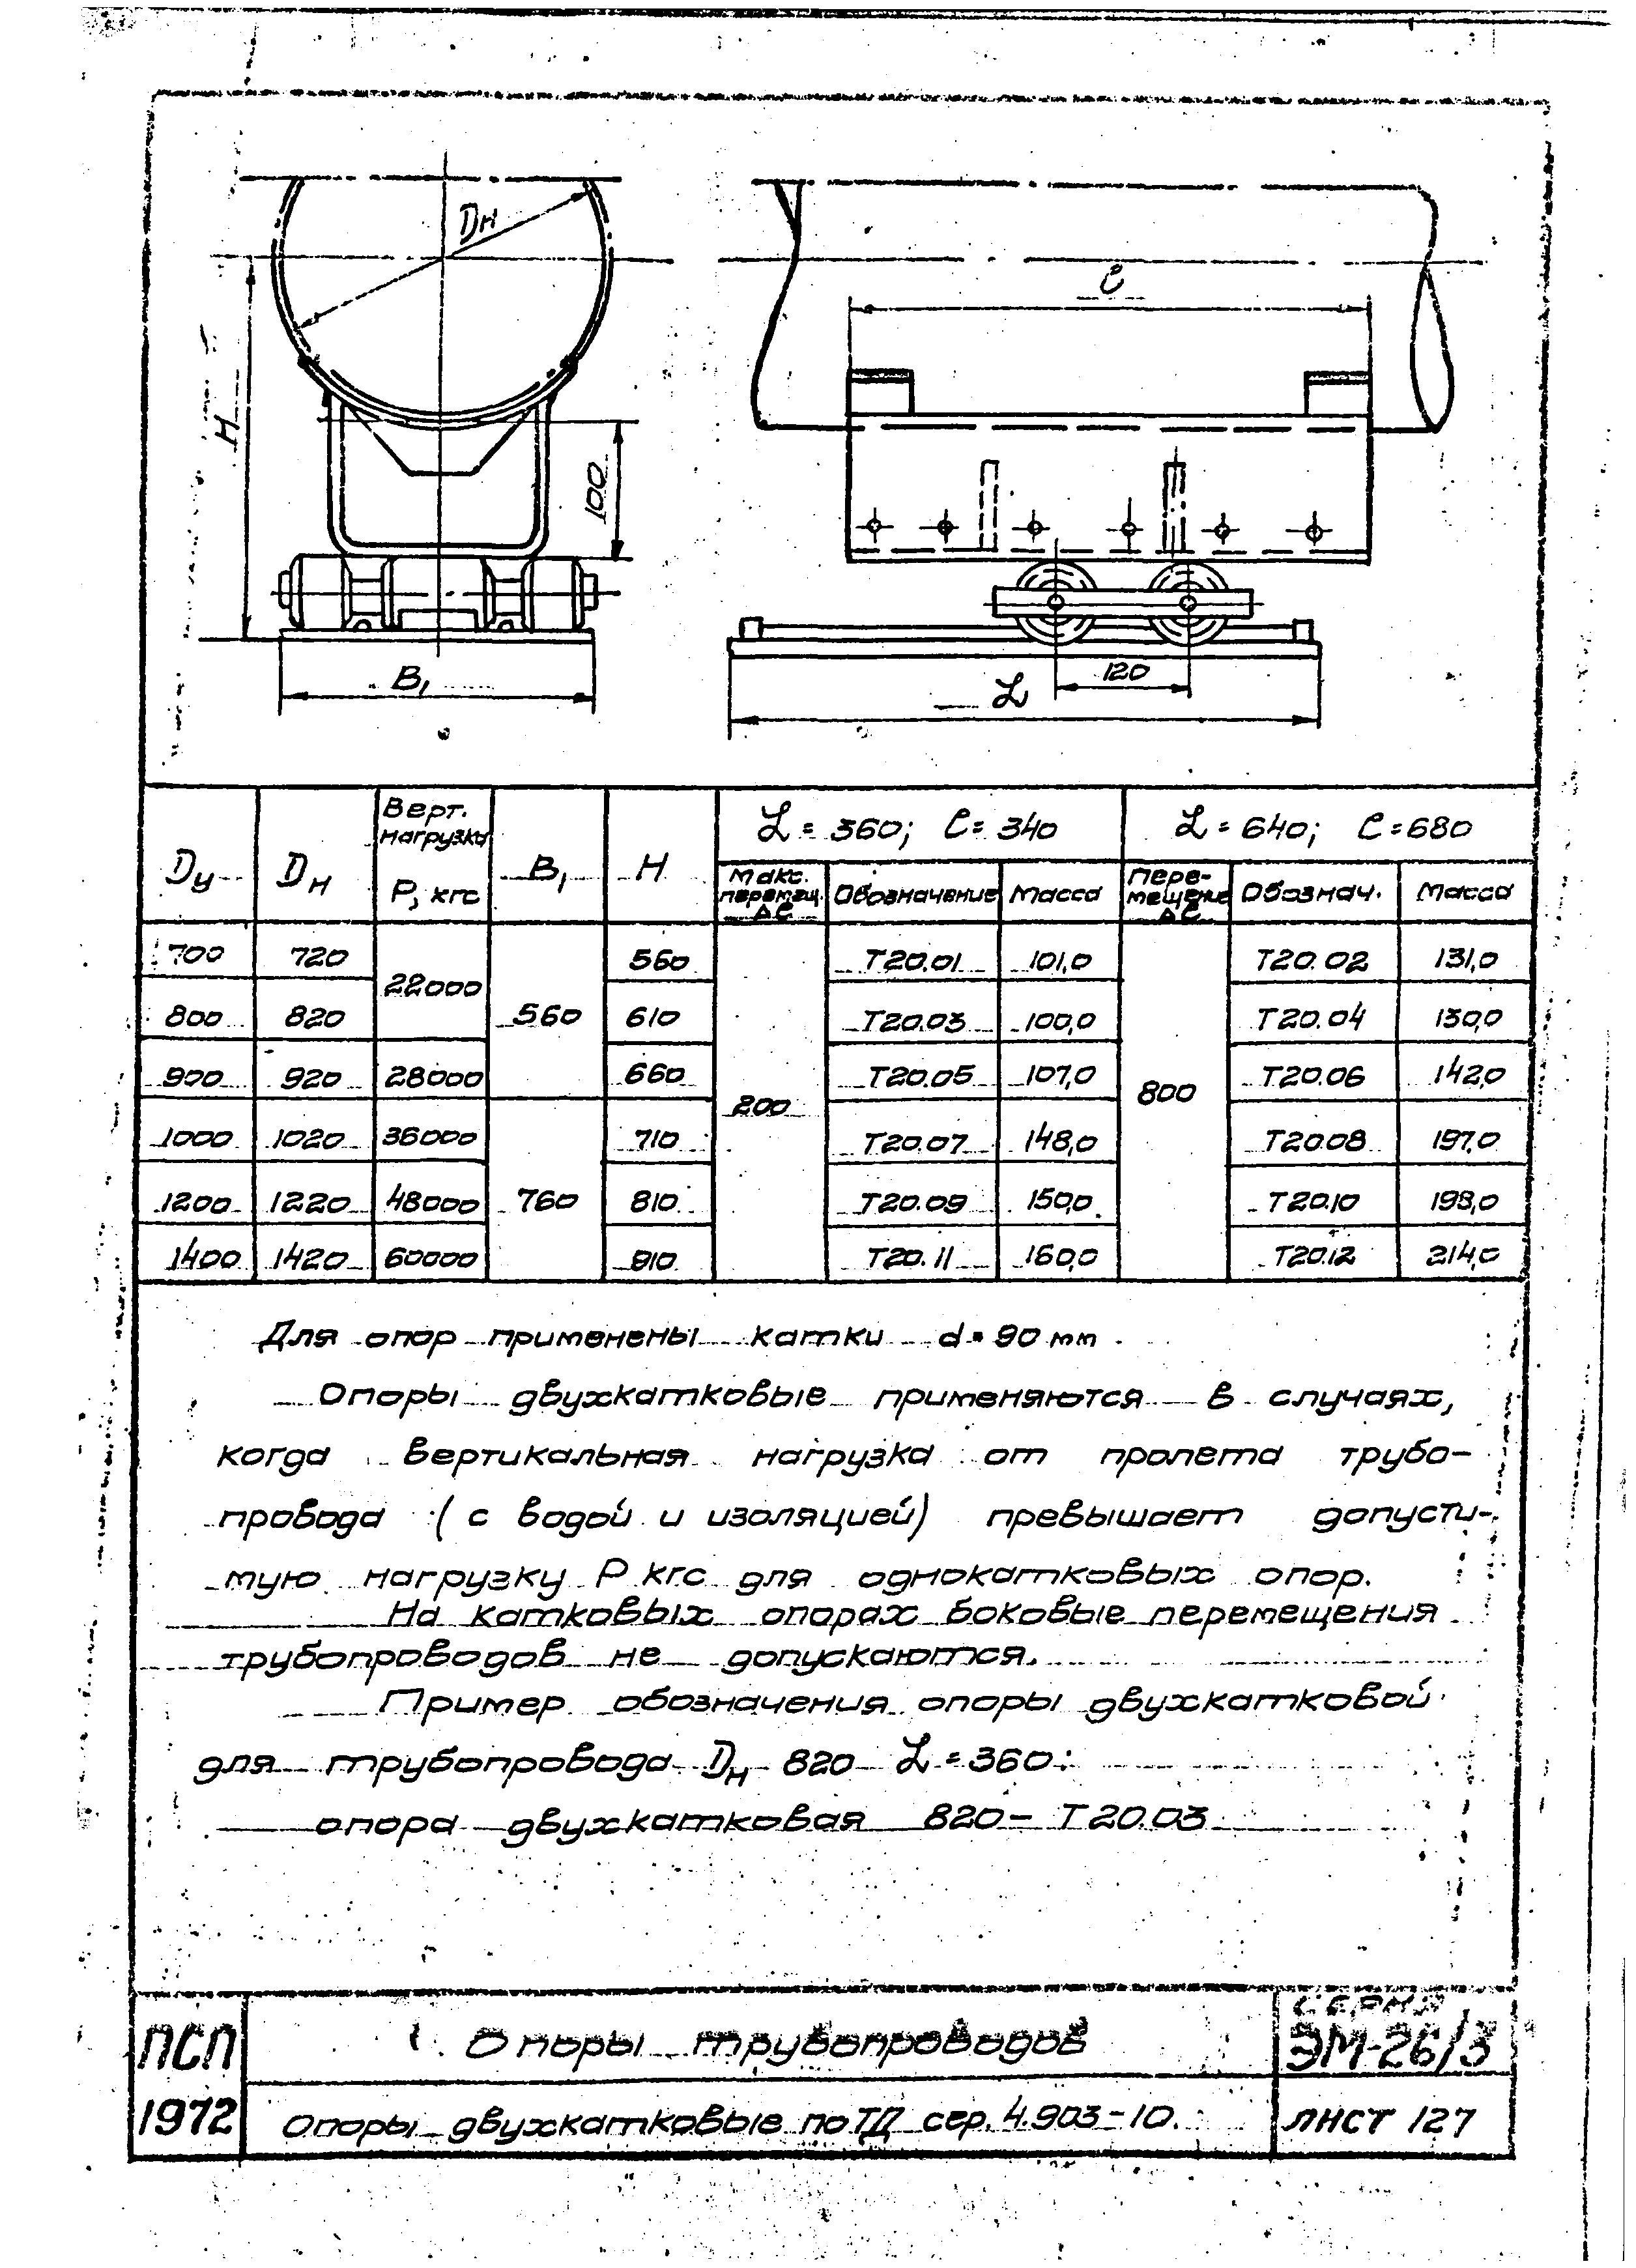 Dн
H
100
B₁
ℓ
120
L
Dу
Dн
Верт.
нагрузка
P, кгс
B₁
H
L = 360; ℓ = 340
L = 640; ℓ = 680
Макс.
перемещ.
Δℓ
Обозначение
Масса
Пере-
мещение
Δℓ
Обознач.
Масса
700 720 22000 560 560 200 Т20.01 101,0 800 Т20.02 131,0
800 820 610 Т20.03 100,0 Т20.04 130,0
900 920 28000 660 Т20.05 107,0 Т20.06 142,0
1000 1020 36000 760 710 Т20.07 148,0 Т20.08 197,0
1200 1220 48000 810 Т20.09 150,0 Т20.10 198,0
1400 1420 60000 910 Т20.11 160,0 Т20.12 214,0
Для опор применены катки d = 90 мм
Опоры двухкатковые применяются в случаях,
когда вертикальная нагрузка от пролета трубо-
провода (с водой и изоляцией) превышает допусти-
мую нагрузку P кгс для однокатковых опор.
На катковых опорах боковые перемещения
трубопроводов не допускаются.
Пример обозначения опоры двухкатковой
для трубопровода Dн 820 L = 360:
опора двухкатковая 820 – Т20.03
ПСП
1972
Опоры трубопроводов
Опоры двухкатковые по ТД сер. 4.903-10.
СЕРИЯ
ЭМ-26/3
ЛИСТ 127